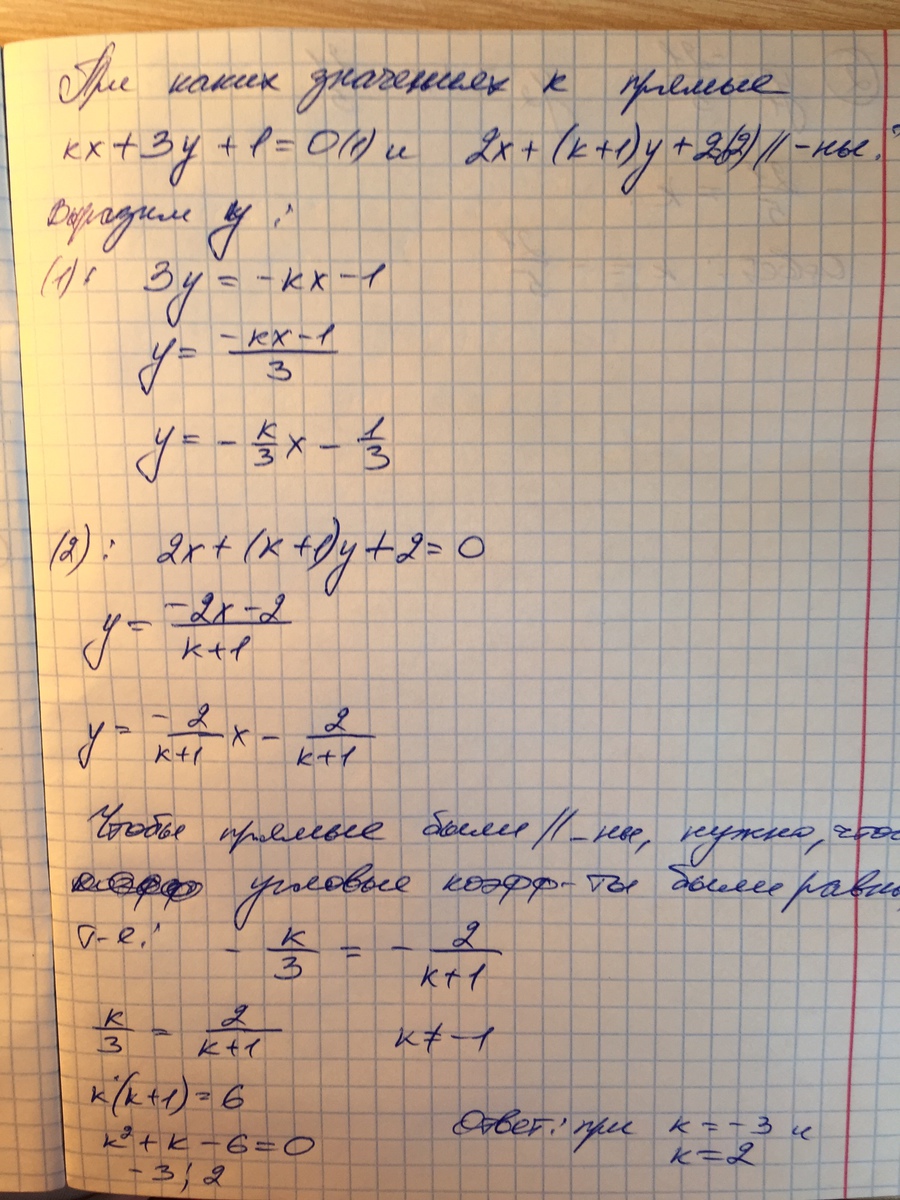 При каких значениях к прямые
кх + 3у + 1 = 0 (1) и 2х + (к+1)у + 2 (2) //-ны.?
Выразим у:
(1): 3у = -кх - 1
у = \frac{-кх-1}{3}
у = - \frac{к}{3} х - \frac{1}{3}
(2): 2х + (к+1)у + 2 = 0
у = \frac{-2х-2}{к+1}
у = \frac{-2}{к+1} х - \frac{2}{к+1}
Чтобы прямые были //-ны, нужно, чтоб
угловые коэфф-ты были равны,
т-е: - \frac{к}{3} = - \frac{2}{к+1}
\frac{к}{3} = \frac{2}{к+1} к ≠ -1
к·(к+1) = 6
к² + к - 6 = 0
-3; 2
Ответ: при к = -3 и
к = 2